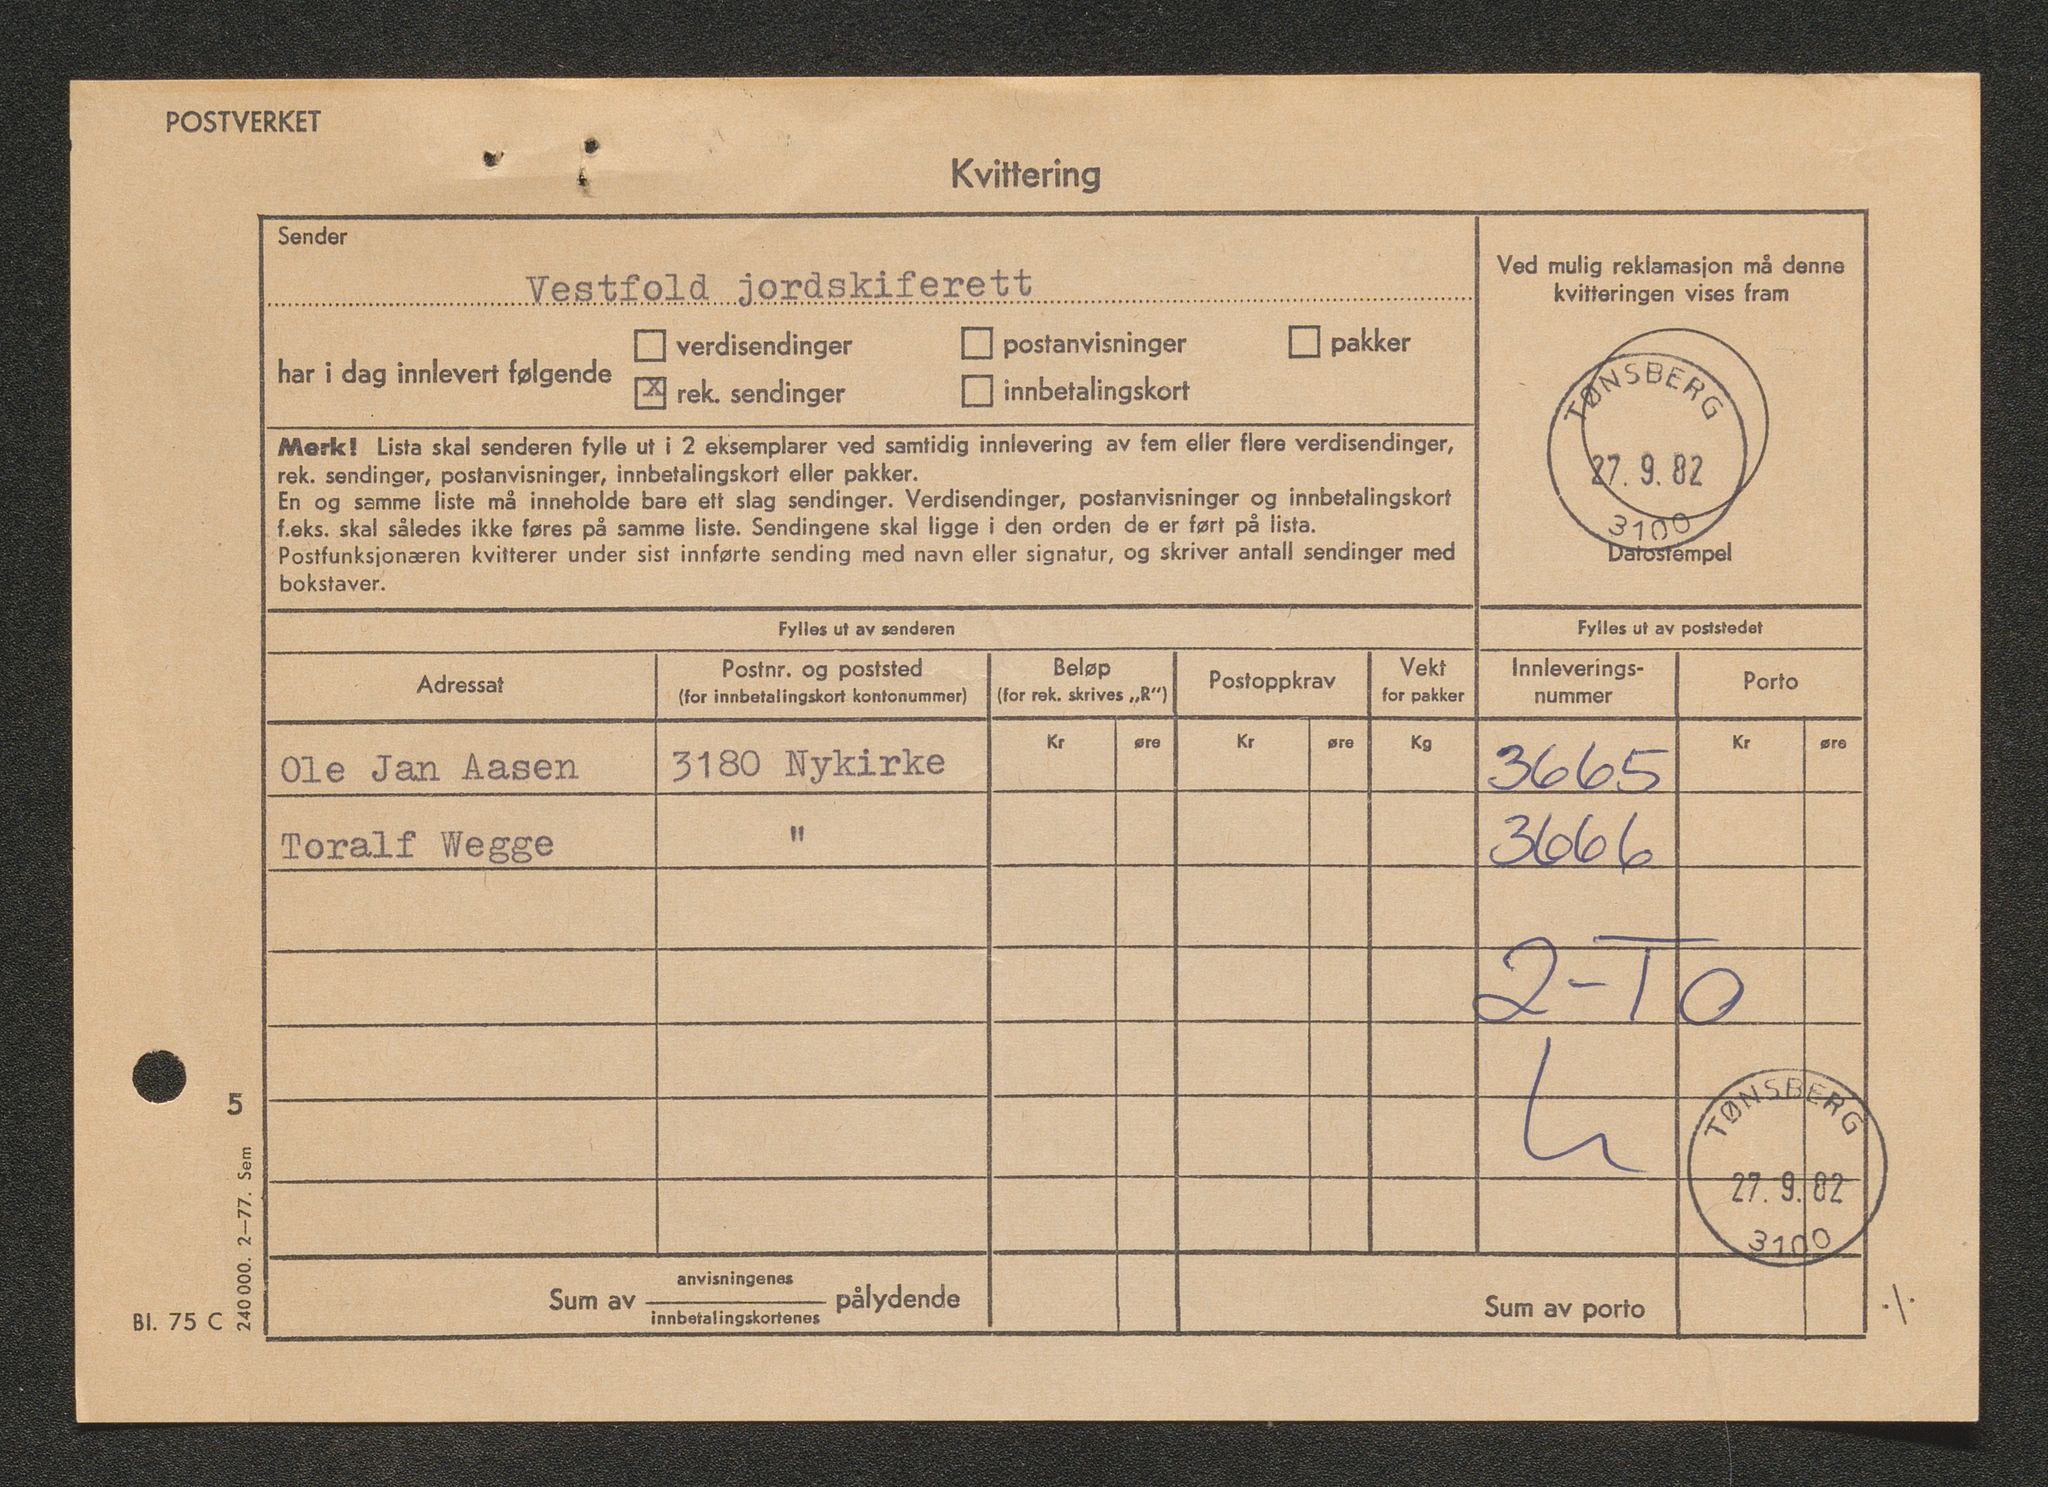 POSTVERKET
Kvittering
Sender
Vestfold jordskiferett
har i dag innlevert følgende
verdisendinger
postanvisninger
pakker
x rek. sendinger
innbetalingskort
Merk! Lista skal senderen fylle ut i 2 eksemplarer ved samtidig innlevering av fem eller flere verdisendinger,
rek. sendinger, postanvisninger, innbetalingskort eller pakker.
En og samme liste må inneholde bare ett slag sendinger. Verdisendinger, postanvisninger og innbetalingskort
f.eks. skal således ikke føres på samme liste. Sendingene skal ligge i den orden de er ført på lista.
Postfunksjonæren kvitterer under sist innførte sending med navn eller signatur, og skriver antall sendinger med
bokstaver.
Ved mulig reklamasjon må denne
kvitteringen vises fram
TØNSBERG
27. 9. 82
3100
Datostempel
Fylles ut av senderen
Fylles ut av poststedet
Adressat
Postnr. og poststed
(for innbetalingskort kontonummer)
Beløp
(for rek. skrives „R")
Postoppkrav
Vekt
for pakker
Innleverings-
nummer
Porto
Kr øre Kr øre Kg Kr øre
Ole Jan Aasen 3180 Nykirke 3665
Toralf Wegge " 3666
2-TO
TØNSBERG
27. 9. 82
3100
Sum av anvisningenes
innbetalingskortenes pålydende
Sum av porto
·/·
5
Bl. 75 C
240 000. 2—77. Sem